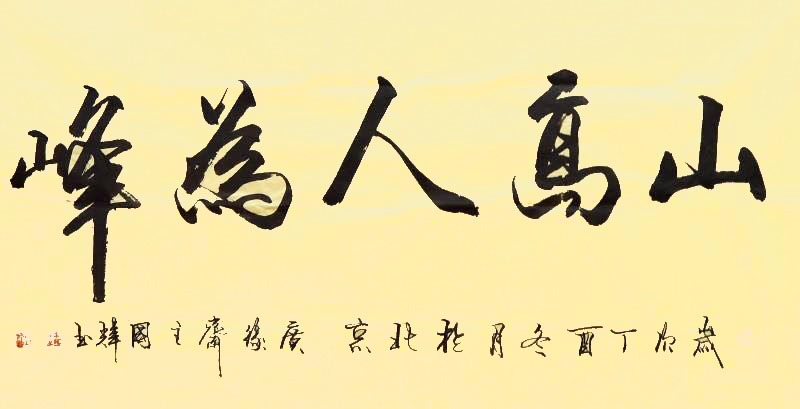 山高人為峰
歲次丁酉冬月於北京 廣緣齋主國輝書